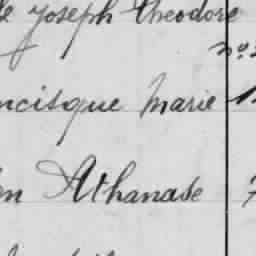 Joseph Theodore
no
ncisque Marie
en Athanase